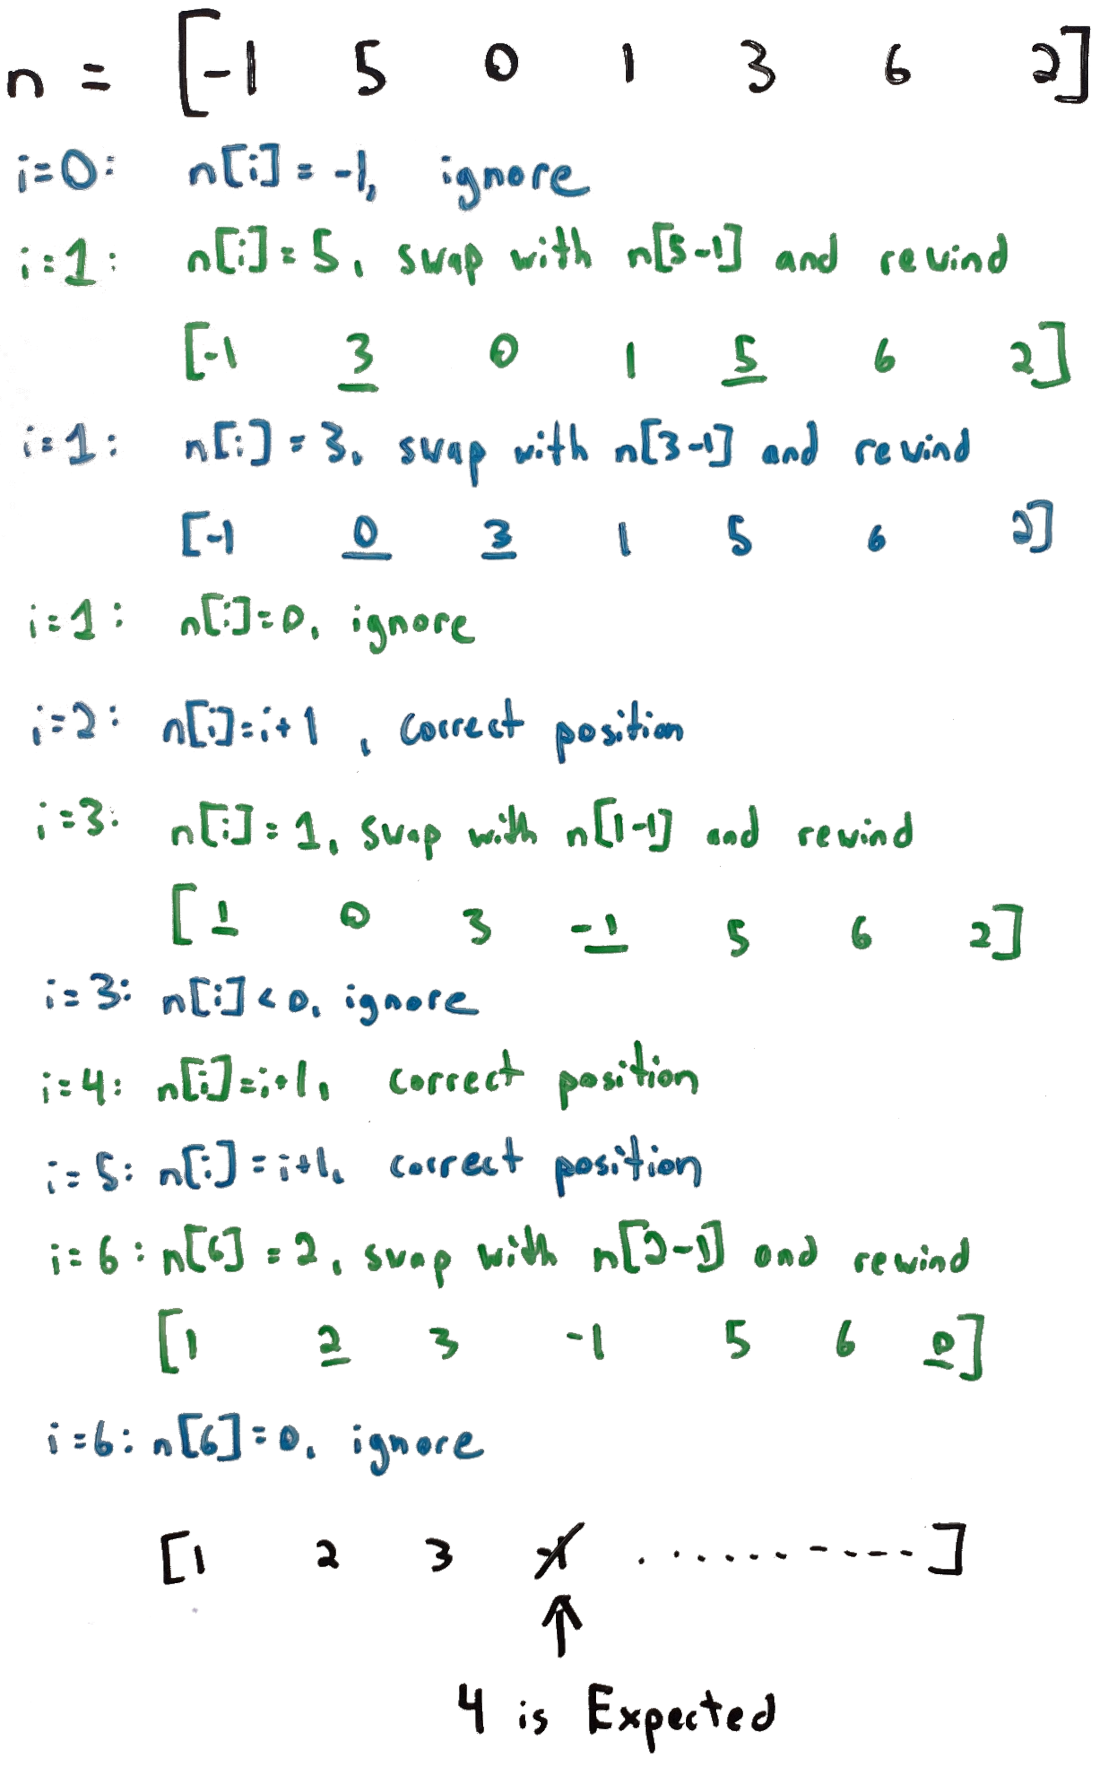 n = [-1 5 0 1 3 6 2]
i=0: n[i] = -1, ignore
i=1: n[i] = 5, swap with n[5-1] and rewind
[-1 3 0 1 5 6 2]
i=1: n[i] = 3, swap with n[3-1] and rewind
[-1 0 3 1 5 6 2]
i=1: n[i]=0, ignore
i=2: n[i]=i+1, correct position
i=3: n[i]=1, swap with n[1-1] and rewind
[1 0 3 -1 5 6 2]
i=3: n[i]<0, ignore
i=4: n[i]=i+1, correct position
i=5: n[i]=i+1, correct position
i=6: n[6] = 2, swap with n[2-1] and rewind
[1 2 3 -1 5 6 0]
i=6: n[6]=0, ignore
[1 2 3 -1 ..........----]
4 is Expected